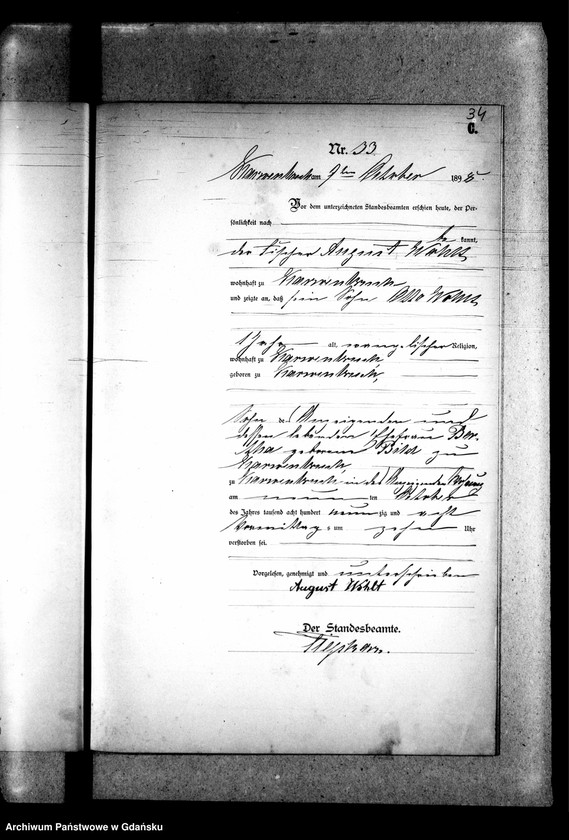 34
C.
Nr. 33.
Karwenbruch am 9ten October 1898.
Vor dem unterzeichneten Standesbeamten erschien heute, der Per-
sönlichkeit nach
be kannt,
der Fischer August Wohlt
wohnhaft zu Karwenbruch
und zeigte an, daß sein Sohn Otto Wohlt
1 Jahr alt, evangelischer Religion,
wohnhaft zu Karwenbruch
geboren zu Karwenbruch,
Sohn des Anzeigenden und
dessen lebenden Ehefrau Ber-
tha geborene zu
Karwenbruch,
zu Karwenbruch in des Anzeigenden Wohnung
am neun ten October
des Jahres tausend acht hundert neun zig und acht
Vormittags um zehn Uhr
verstorben sei.
Vorgelesen, genehmigt und unterschrieben
August Wohlt
Der Standesbeamte.